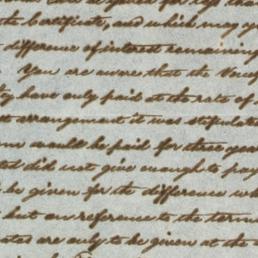 the Certificate, and which may
difference of interest remaining
You are aware that the
have only paid at the rate of
arrangement it was stipulated
would be paid for three
did not give enough to pay
be given for the difference
but on reference to the terms
are only to be given at the